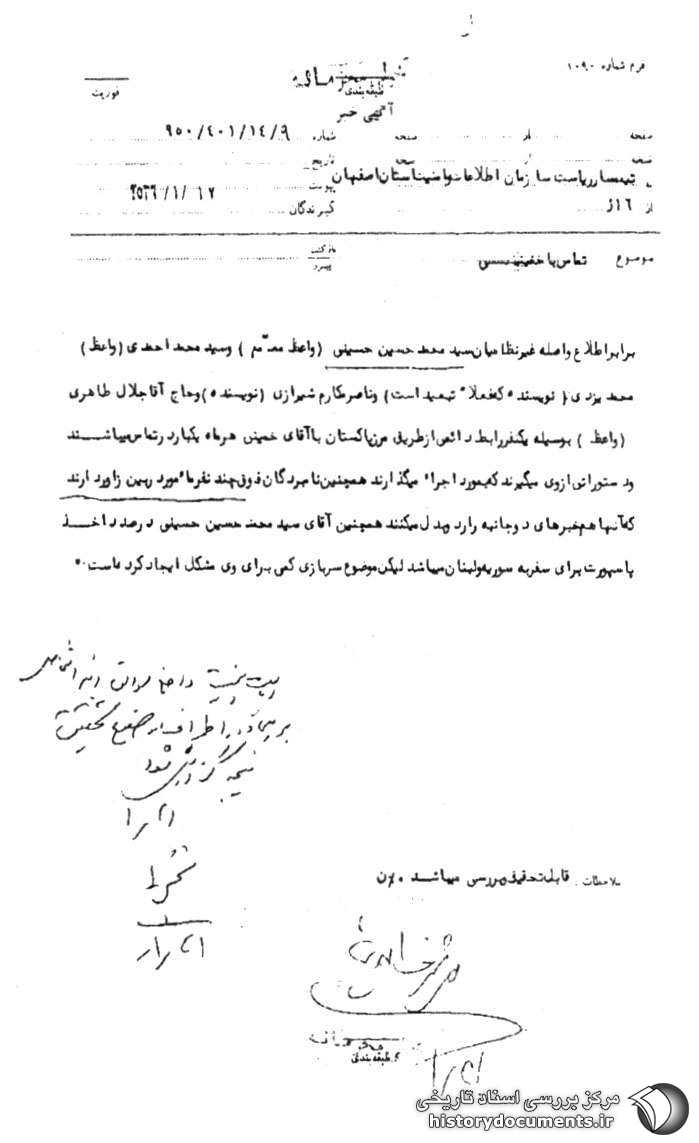 فرم شماره ۱۰۹۰
خیلی محرمانه
طبقه‌بندی
فوریت
آگهی خبر
صفحه از صفحه شماره ۹۵۰/۴۰۱/۱۴/۹
نسخه از نسخه تاریخ
تیمسار ریاست سازمان اطلاعات و امنیت استان اصفهان پیوست ۲۵۳۶/۱/۱۷
از گیرندگان
موضوع تماس با خمینی
بازگشت
پیرو
برابر اطلاع واصله غیرنظامیان سید محمد حسین حسینی (واعظ معمم) و سید محمد احمدی (واعظ)
محمد یزدی (نویسنده که فعلاً تبعید است) و ناصر مکارم شیرازی (نویسنده) و حاج آقا جلال طاهری
(واعظ) بوسیله یکنفر رابط دائمی از طریق مرز پاکستان با آقای خمینی هر ماه یکبار در تماس میباشند
و دستوراتی از وی میگیرند که بمورد اجراء میگذارند همچنین نامبردگان فوق چند نفر مأمور دربین زاوردارند
که آنها هم خبرهای دوجانبه را رد و بدل میکنند همچنین آقای سید محمد حسین حسینی در صدد اخذ
پاسپورت برای سفر به سوریه و لبنان میباشد لیکن موضوع سربازی کمی برای وی مشکل ایجاد کرده است.
نتیجه گزارش شود
ملاحظات قابل تحقیق و بررسی میباشد
محرمانه
طبقه‌بندی
مرکز بررسی اسناد تاریخی
historydocuments.ir